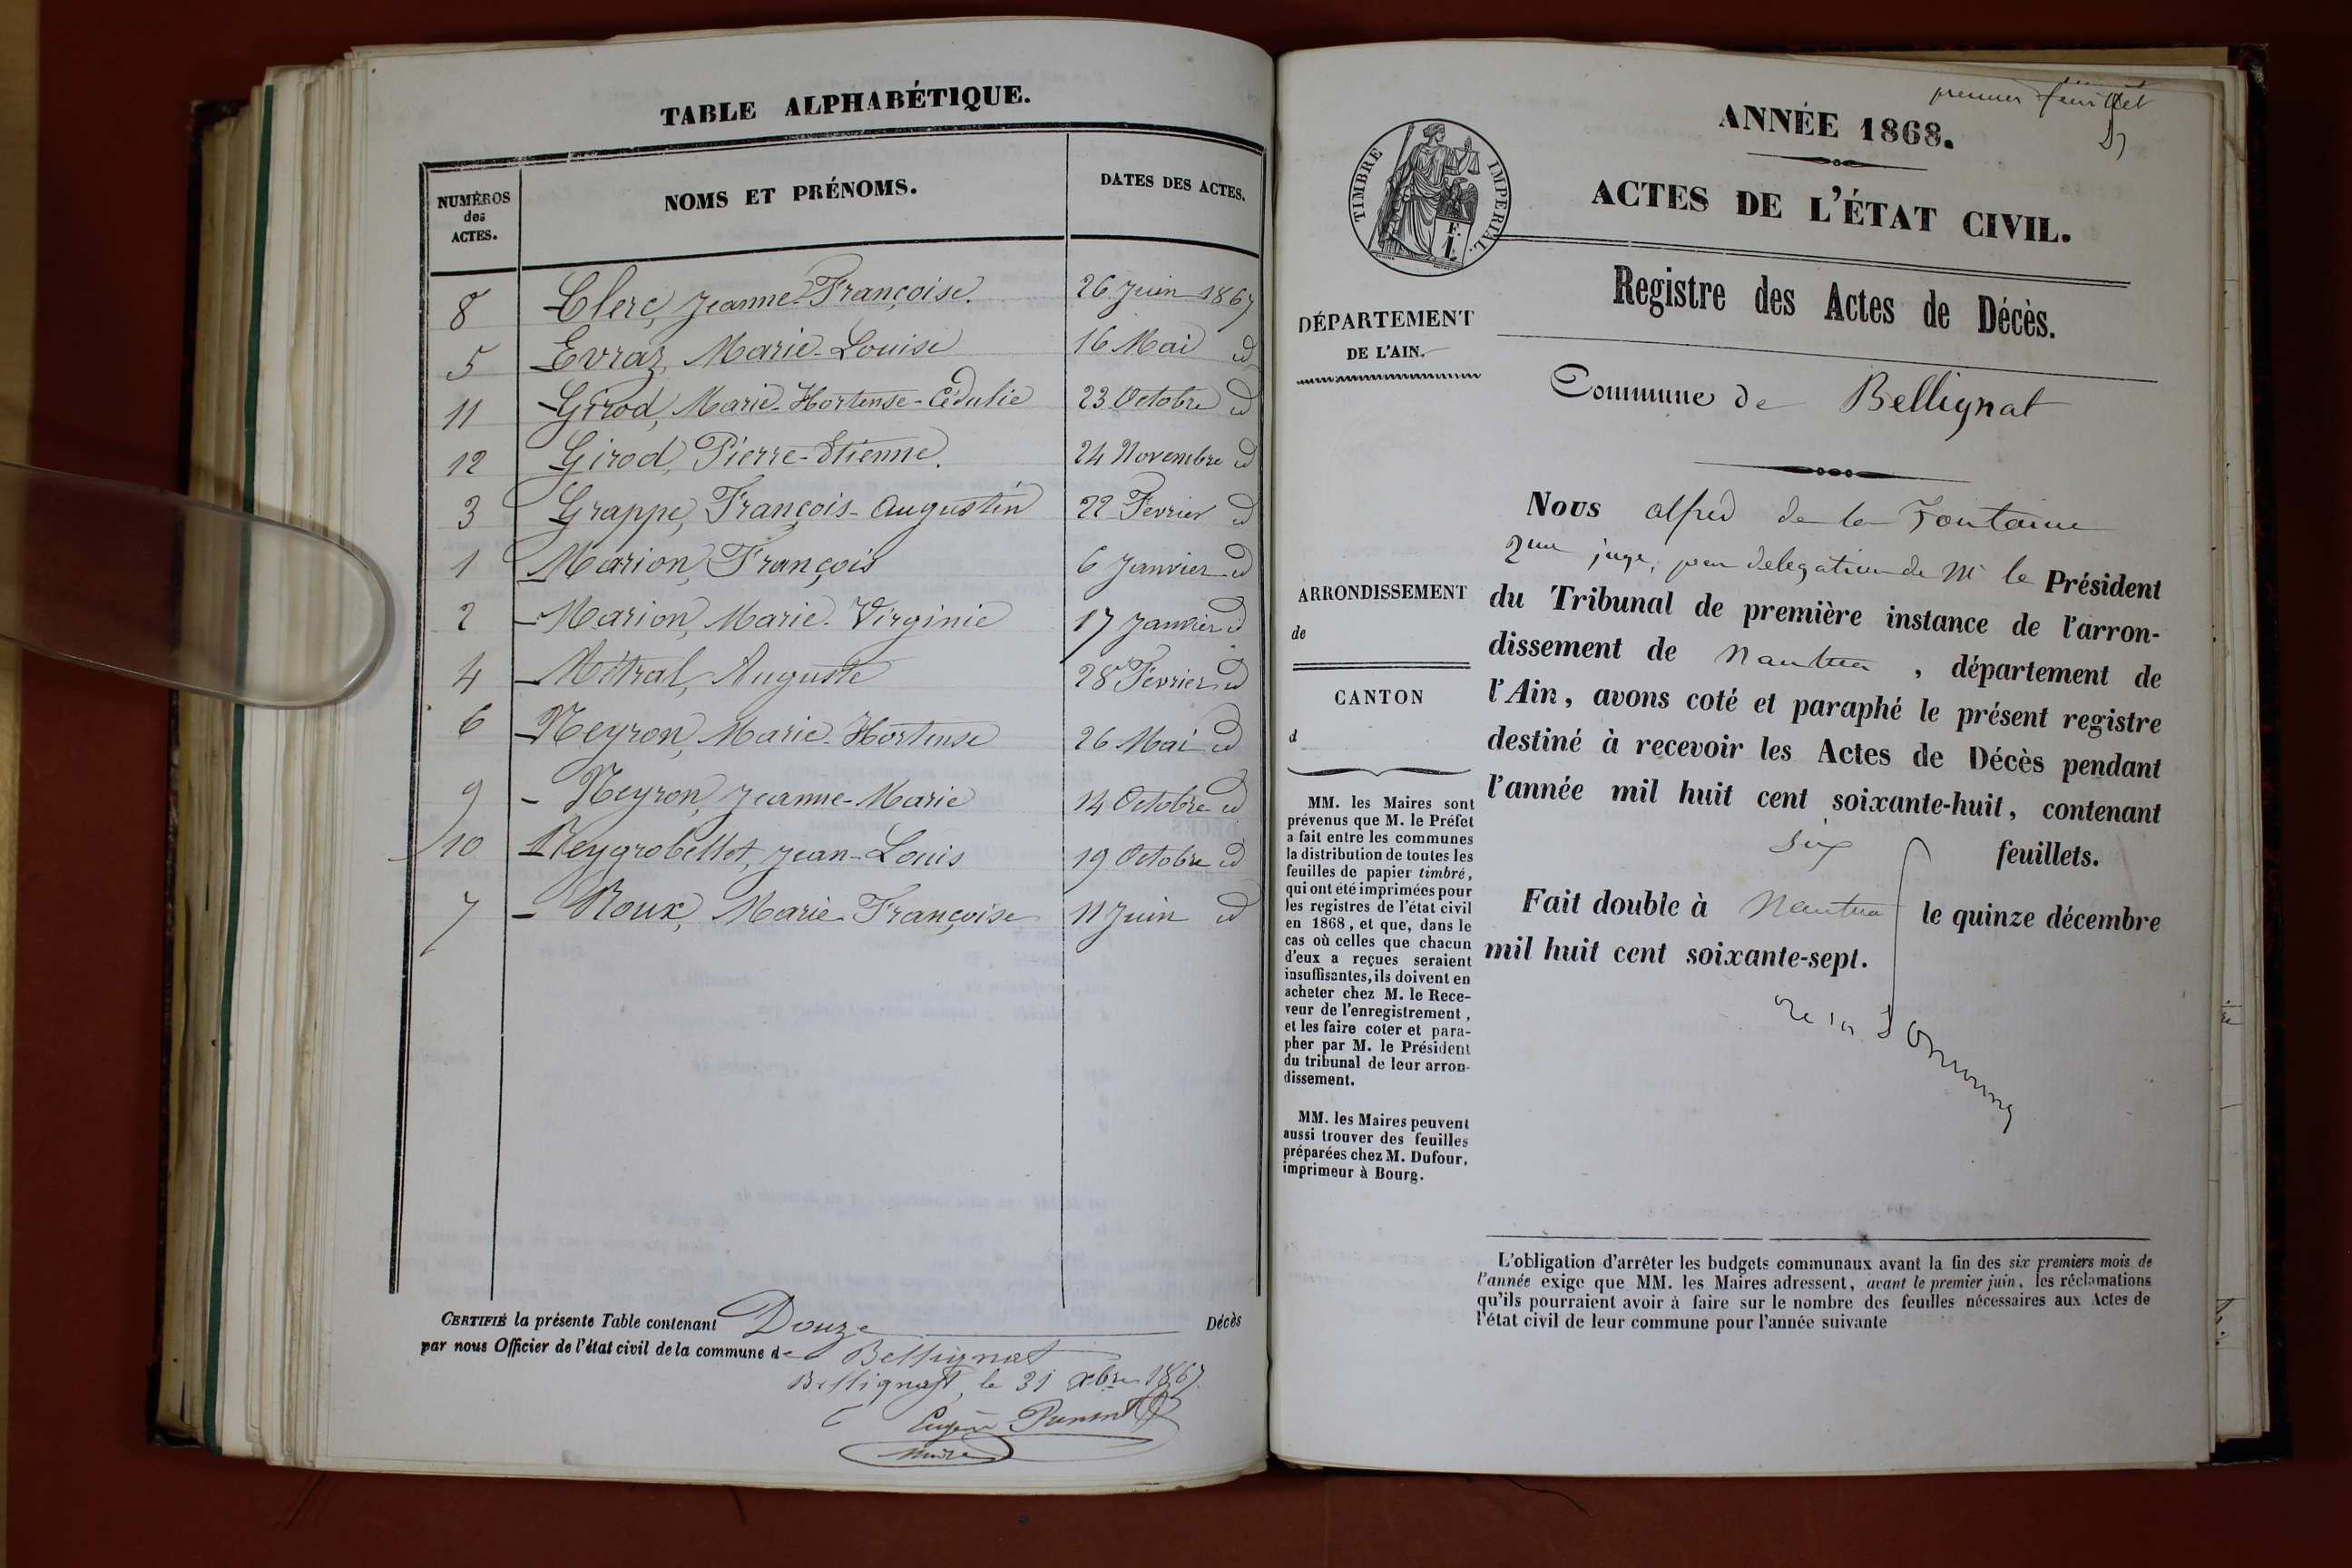 TABLE ALPHABÉTIQUE.
NUMÉROS
des
ACTES.
NOMS ET PRÉNOMS.
DATES DES ACTES.
8 Clerc, Jeanne-Françoise. 26 Juin 1867
5 Evraz, Marie-Louise 16 Mai id
11 Girod, Marie-Hortense-Cédulie 23 Octobre id
12 Girod, Pierre-Etienne. 24 Novembre id
3 Grappe, François-Augustin 22 Fevrier id
1 Marion, François 6 Janvier id
2 Marion, Marie-Virginie 17 Janvier id
4 Mitral, Auguste 28 Fevrier id
6 Neyron, Marie-Hortense 26 Mai id
9 Neyron, Jeanne-Marie 14 Octobre id
10 Reygrobellet, Jean-Louis 19 Octobre id
7 Roux, Marie-Françoise 11 Juin id
CERTIFIÉ la présente Table contenant Douze Décès
par nous Officier de l'état civil de la commune de Bellignat
Bellignat, le 31 Xbre 1867.
Eugène
Maire
premier feuillet
ANNÉE 1868.
ACTES DE L'ÉTAT CIVIL.
TIMBRE IMPÉRIAL.
Registre des Actes de Décès.
DÉPARTEMENT
DE L'AIN.
Commune de Bellignat
ARRONDISSEMENT
de
CANTON
d
MM. les Maires sont
prévenus que M. le Préfet
a fait entre les communes
la distribution de toutes les
feuilles de papier timbré,
qui ont été imprimées pour
les registres de l'état civil
en 1868, et que, dans le
cas où celles que chacun
d'eux a reçues seraient
insuffisantes, ils doivent en
acheter chez M. le Rece-
veur de l'enregistrement,
et les faire coter et para-
pher par M. le Président
du tribunal de leur arron-
dissement.
MM. les Maires peuvent
aussi trouver des feuilles
préparées chez M. Dufour,
imprimeur à Bourg.
Nous alfred de la Fontaine
2me juge, par delegation de Mr le Président
du Tribunal de première instance de l'arron-
dissement de Nantua, département de
l'Ain, avons coté et paraphé le présent registre
destiné à recevoir les Actes de Décès pendant
l'année mil huit cent soixante-huit, contenant
six feuillets.
Fait double à Nantua le quinze décembre
mil huit cent soixante-sept.
L'obligation d'arrêter les budgets communaux avant la fin des six premiers mois de
l'année exige que MM. les Maires adressent, avant le premier juin, les réclamations
qu'ils pourraient avoir à faire sur le nombre des feuilles nécessaires aux Actes de
l'état civil de leur commune pour l'année suivante